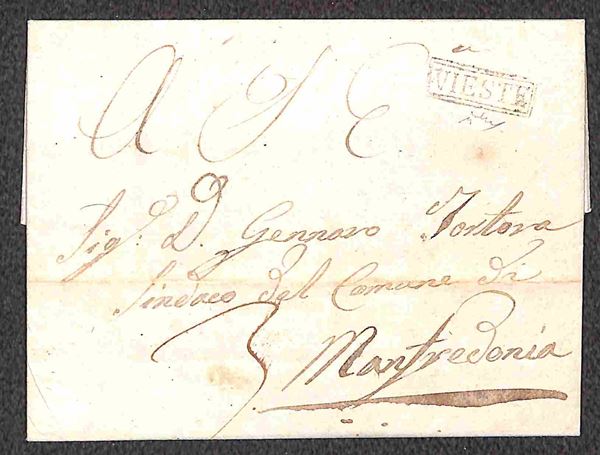 VIESTE
A S E
Sig.r D. Gennaro Tortora
Sindaco del Comune di
3
Manfredonia